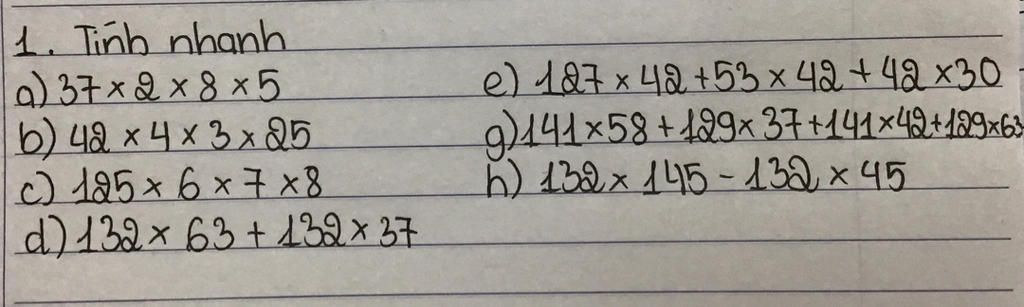 1. Tính nhanh
a) 37 × 2 × 8 × 5
b) 42 × 4 × 3 × 25
c) 125 × 6 × 7 × 8
d) 132 × 63 + 132 × 37
e) 127 × 42 + 53 × 42 + 42 × 30
g) 141 × 58 + 129 × 37 + 141 × 42 + 129 × 63
h) 132 × 145 - 132 × 45